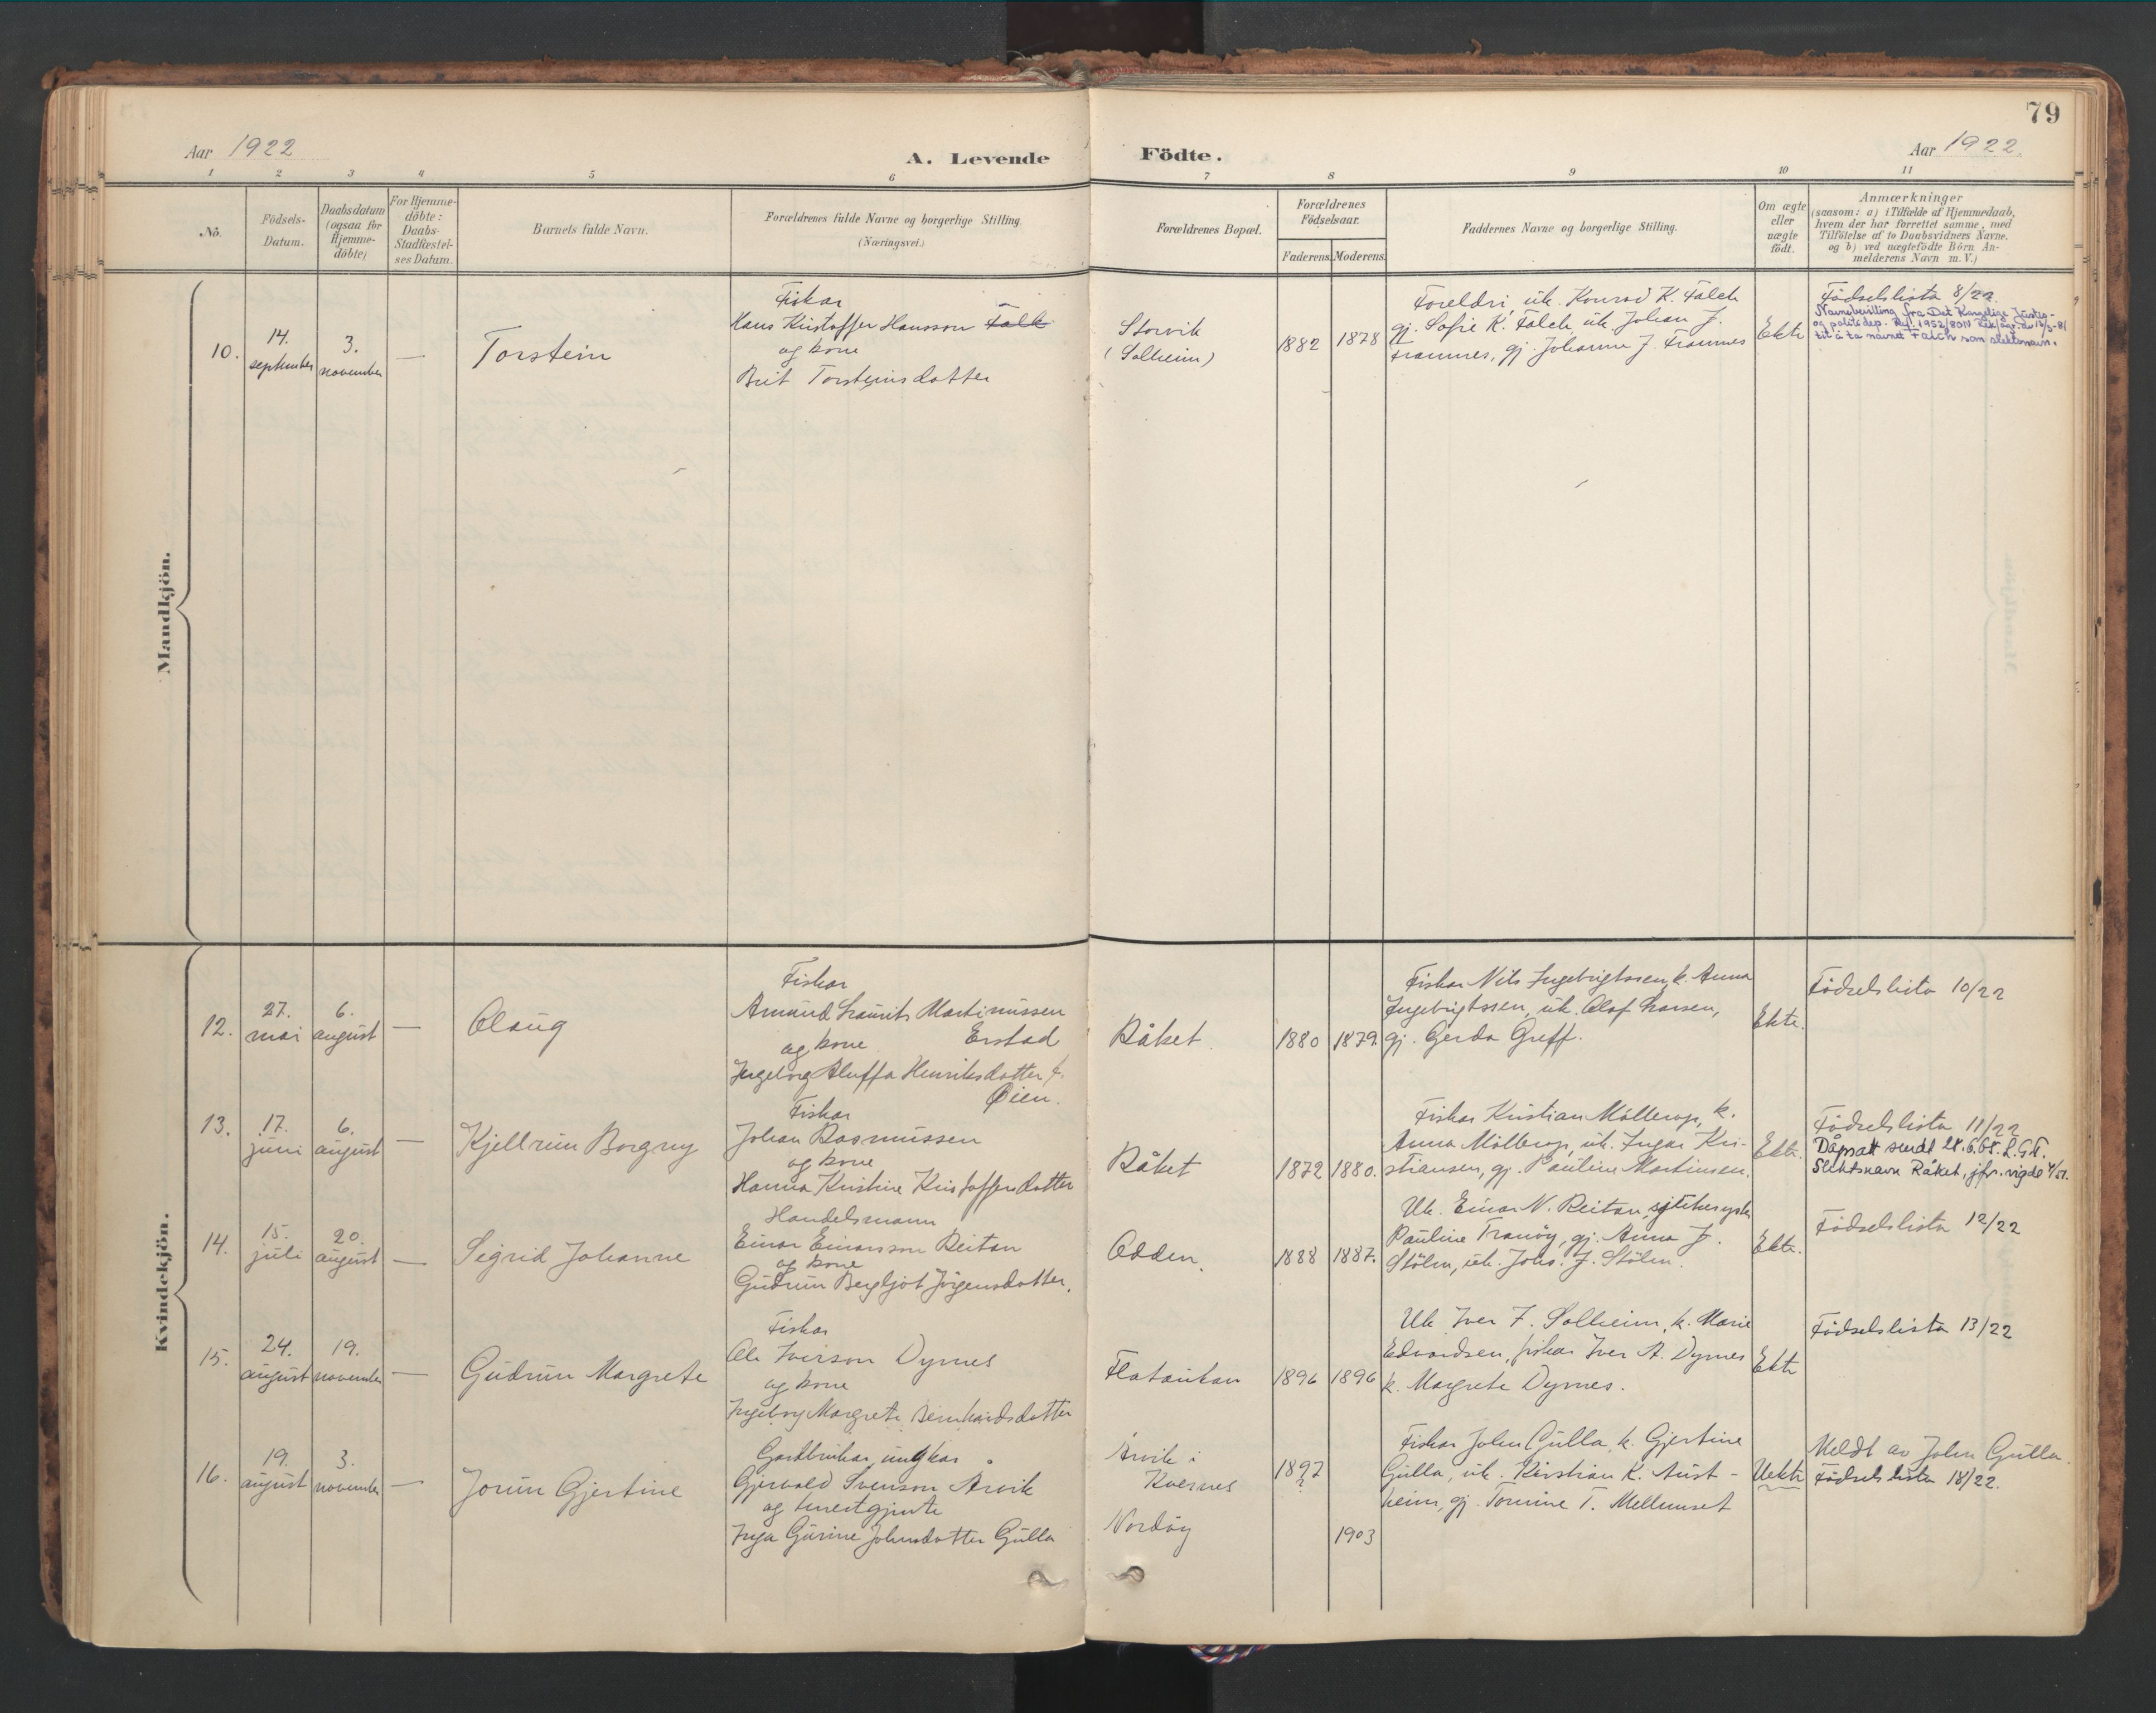 79
Aar 1922
A. Levende
Födte.
Aar 1922.
1 2 3 4 5 6 7 8 9 10 11
No.
Födsels-
Datum.
Daabsdatum
(ogsaa for
Hjemme-
döbte)
For Hjemme-
döbte:
Daabs-
Stadfæstel-
ses Datum.
Barnets fulde Navn.
Forældrenes fulde Navne og borgerlige Stilling.
(Næringsvei.)
Forældrenes Bopæl.
Forældrenes
Födselsaar.
Faderens. Moderens.
Faddernes Navne og borgerlige Stilling.
Om ægte
eller
uægte
födt.
Anmærkninger
(saasom: a) i Tilfælde af Hjemmedaab,
hvem der har forrettet samme, med
Tilföielse af to Daabsvidners Navne,
og b) ved uægtefödte Börn An-
melderens Navn m. V.)
Mandkjön.
10.
14.
september
3.
november
—
Torstein
Fiskar
Hans Kristoffer Hansson Falk
og kone
Brit Torsteinsdotter
Storvik
(Solheim)
1882 1878
Foreldri, uk. Konrad K. Falch
gj. Sofie K. Falch, uk. Johan J.
Framnes, gj. Johanna J. Framnes
Ekte
Fødselslista 8/22.
Navnebevilling fra Det Kongelige Justis-
og politidep.
til å ta navnet Falch som slektsnavn.
Kvindekjön.
12.
27.
mai
6.
august
—
Olaug
Fiskar
Amund Laurits Martinussen
og kone Erstad
Ingeborg Aluffa Henriksdotter f.
Øien.
Råket
1880 1879.
Fiskar Nils Ingebrigtssen, k. Anna
Ingebrigtssen, uk. Olaf Larsen,
gj. Gerda Greff.
Ekte.
Fødselslista 10/22
13.
17.
juni
6.
august
—
Kjellrun Borgny
Fiskar
Johan Rasmussen
og kone
Hanna Kristine Kristoffersdotter
Råket
1872 1880.
Fiskar Kristian Möllerop, k.
Anna Möllerop, uk. Ingar Kri-
stiansen, gj. Pauline Martinsen.
Ekte.
Fødselslista 11/22
Dåpsatt. sendt 28.6.68.
Slektsnavn Råket, jfr. vigde 4/51.
14.
15.
juli
20.
august
—
Sigrid Johanne
Handelsmann
Einar Einarsson Reitan
og kone
Gudrun Bergljot Jörgensdotter.
Odden.
1888 1887.
Uk. Einar N. Reitan,
Pauline Tranöy, gj. Anna J.
Stölen, uk. Johs. J. Stölen.
Ekte.
Fødselslista 12/22
15.
24.
august
19.
november
—
Gudrun Margrete
Fiskar
Ole Iverson Dyrnes
og kone
Ingeborg Margrete Bernhardsdotter
Flataukan
1896 1896
Uk Iver F. Solheim, k. Marie
Edvardsen, fiskar Iver A. Dyrnes
k. Margrete Dyrnes.
Ekte
Fødselslista 13/22
16.
19.
august
3.
november
—
Jorun Gjertine
Gardbrukar, ungkar
Gjervald Svenson Årvik
og tenestgjente
Inga Gurine Johnsdotter Gulla
Årvik i
Kvernes
Nordöy
1897
?
1903
Fiskar John Gulla, k. Gjertine
Gulla, uk. Kristian K. Aust-
heim, gj. Tomine T. Mellemset
Uekte
Meldt av John Gulla.
Fødselslista 18/22.